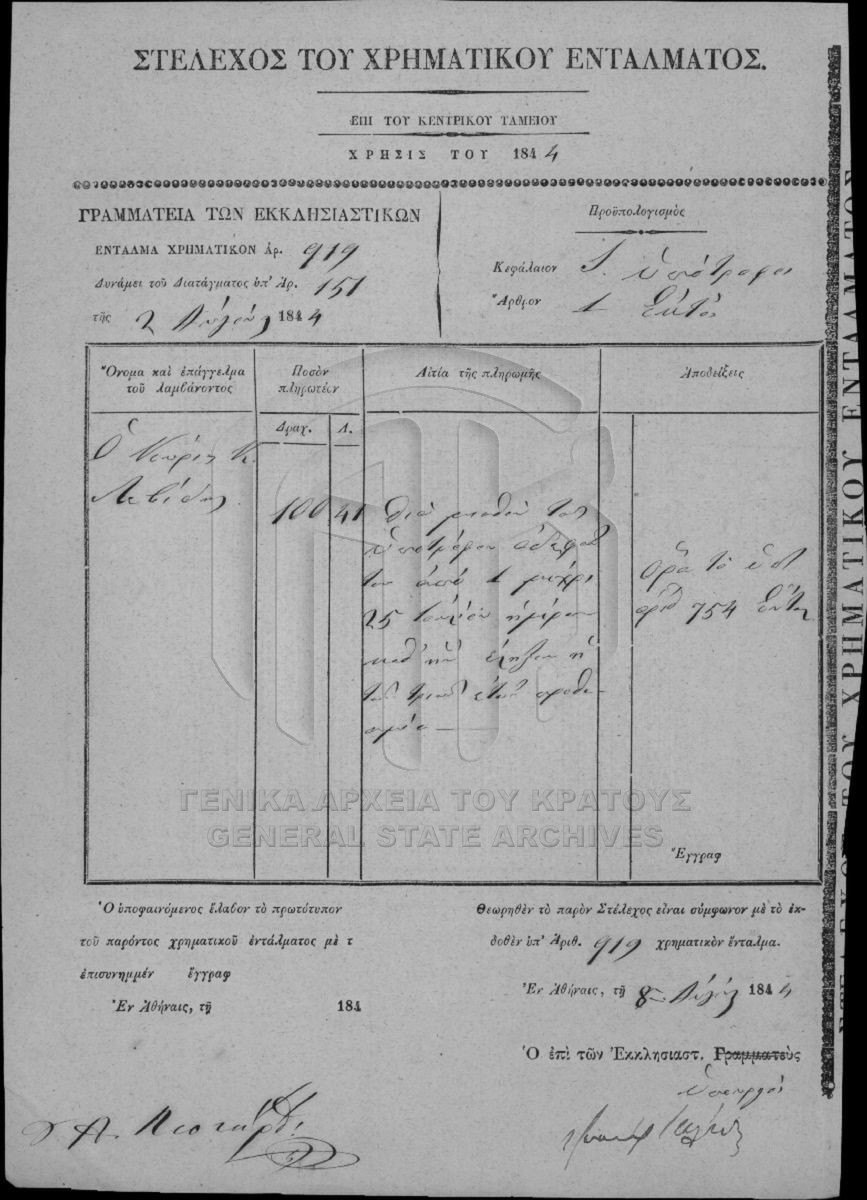 ΣΤΕΛΕΧΟΣ ΤΟΥ ΧΡΗΜΑΤΙΚΟΥ ΕΝΤΑΛΜΑΤΟΣ.
ΕΠΙ ΤΟΥ ΚΕΝΤΡΙΚΟΥ ΤΑΜΕΙΟΥ
ΧΡΗΣΙΣ ΤΟΥ 1844
ΓΡΑΜΜΑΤΕΙΑ ΤΩΝ ΕΚΚΛΗΣΙΑΣΤΙΚΩΝ
ΕΝΤΑΛΜΑ ΧΡΗΜΑΤΙΚΟΝ ἀρ. 919
Δυνάμει τοῦ Διατάγματος ὑπ' Ἀρ. 151
τῆς 2 1844
Προϋπολογισμὸς
Κεφάλαιον ὑπότροφοι
Ἄρθρον 1
Ὄνομα καὶ ἐπάγγελμα
τοῦ λαμβάνοντος
Ποσὸν
πληρωτέον
Αἰτία τῆς πληρωμῆς
Ἀποδείξεις
Δραχ. Λ.
Ὁ Κ.
Λεβίδης
100 41
διὰ μισθὸν τοῦ
ὑποτρόφου ἀδελφοῦ
του ἀπὸ 1 μέχρι
25 ἡμέραν
καθ' ἣν ἔληξεν ἡ
τοῦ τριετοῦς προθε
σμία
Ὅρα τὸ ὑπ
ἀριθ 754
Ἔγγραφ
ΓΕΝΙΚΑ ΑΡΧΕΙΑ ΤΟΥ ΚΡΑΤΟΥΣ
GENERAL STATE ARCHIVES
Ὁ ὑποφαινόμενος ἔλαβον τὸ πρωτότυπον
τοῦ παρόντος χρηματικοῦ ἐντάλματος μὲ τ
ἐπισυνημμέν ἔγγραφ
Ἐν Ἀθήναις, τῇ 184
Θεωρηθὲν τὸ παρὸν Στέλεχος εἶναι σύμφωνον μὲ τὸ ἐκ-
δοθὲν ὑπ' Ἀριθ. 919 χρηματικὸν ἔνταλμα.
Ἐν Ἀθήναις, τῇ 8 1844
Ὁ ἐπὶ τῶν Ἐκκλησιαστ. Γραμματεὺς
ὑπουργὸς
ΣΤΕΛΕΧΟΣ ΤΟΥ ΧΡΗΜΑΤΙΚΟΥ ΕΝΤΑΛΜΑΤΟΣ